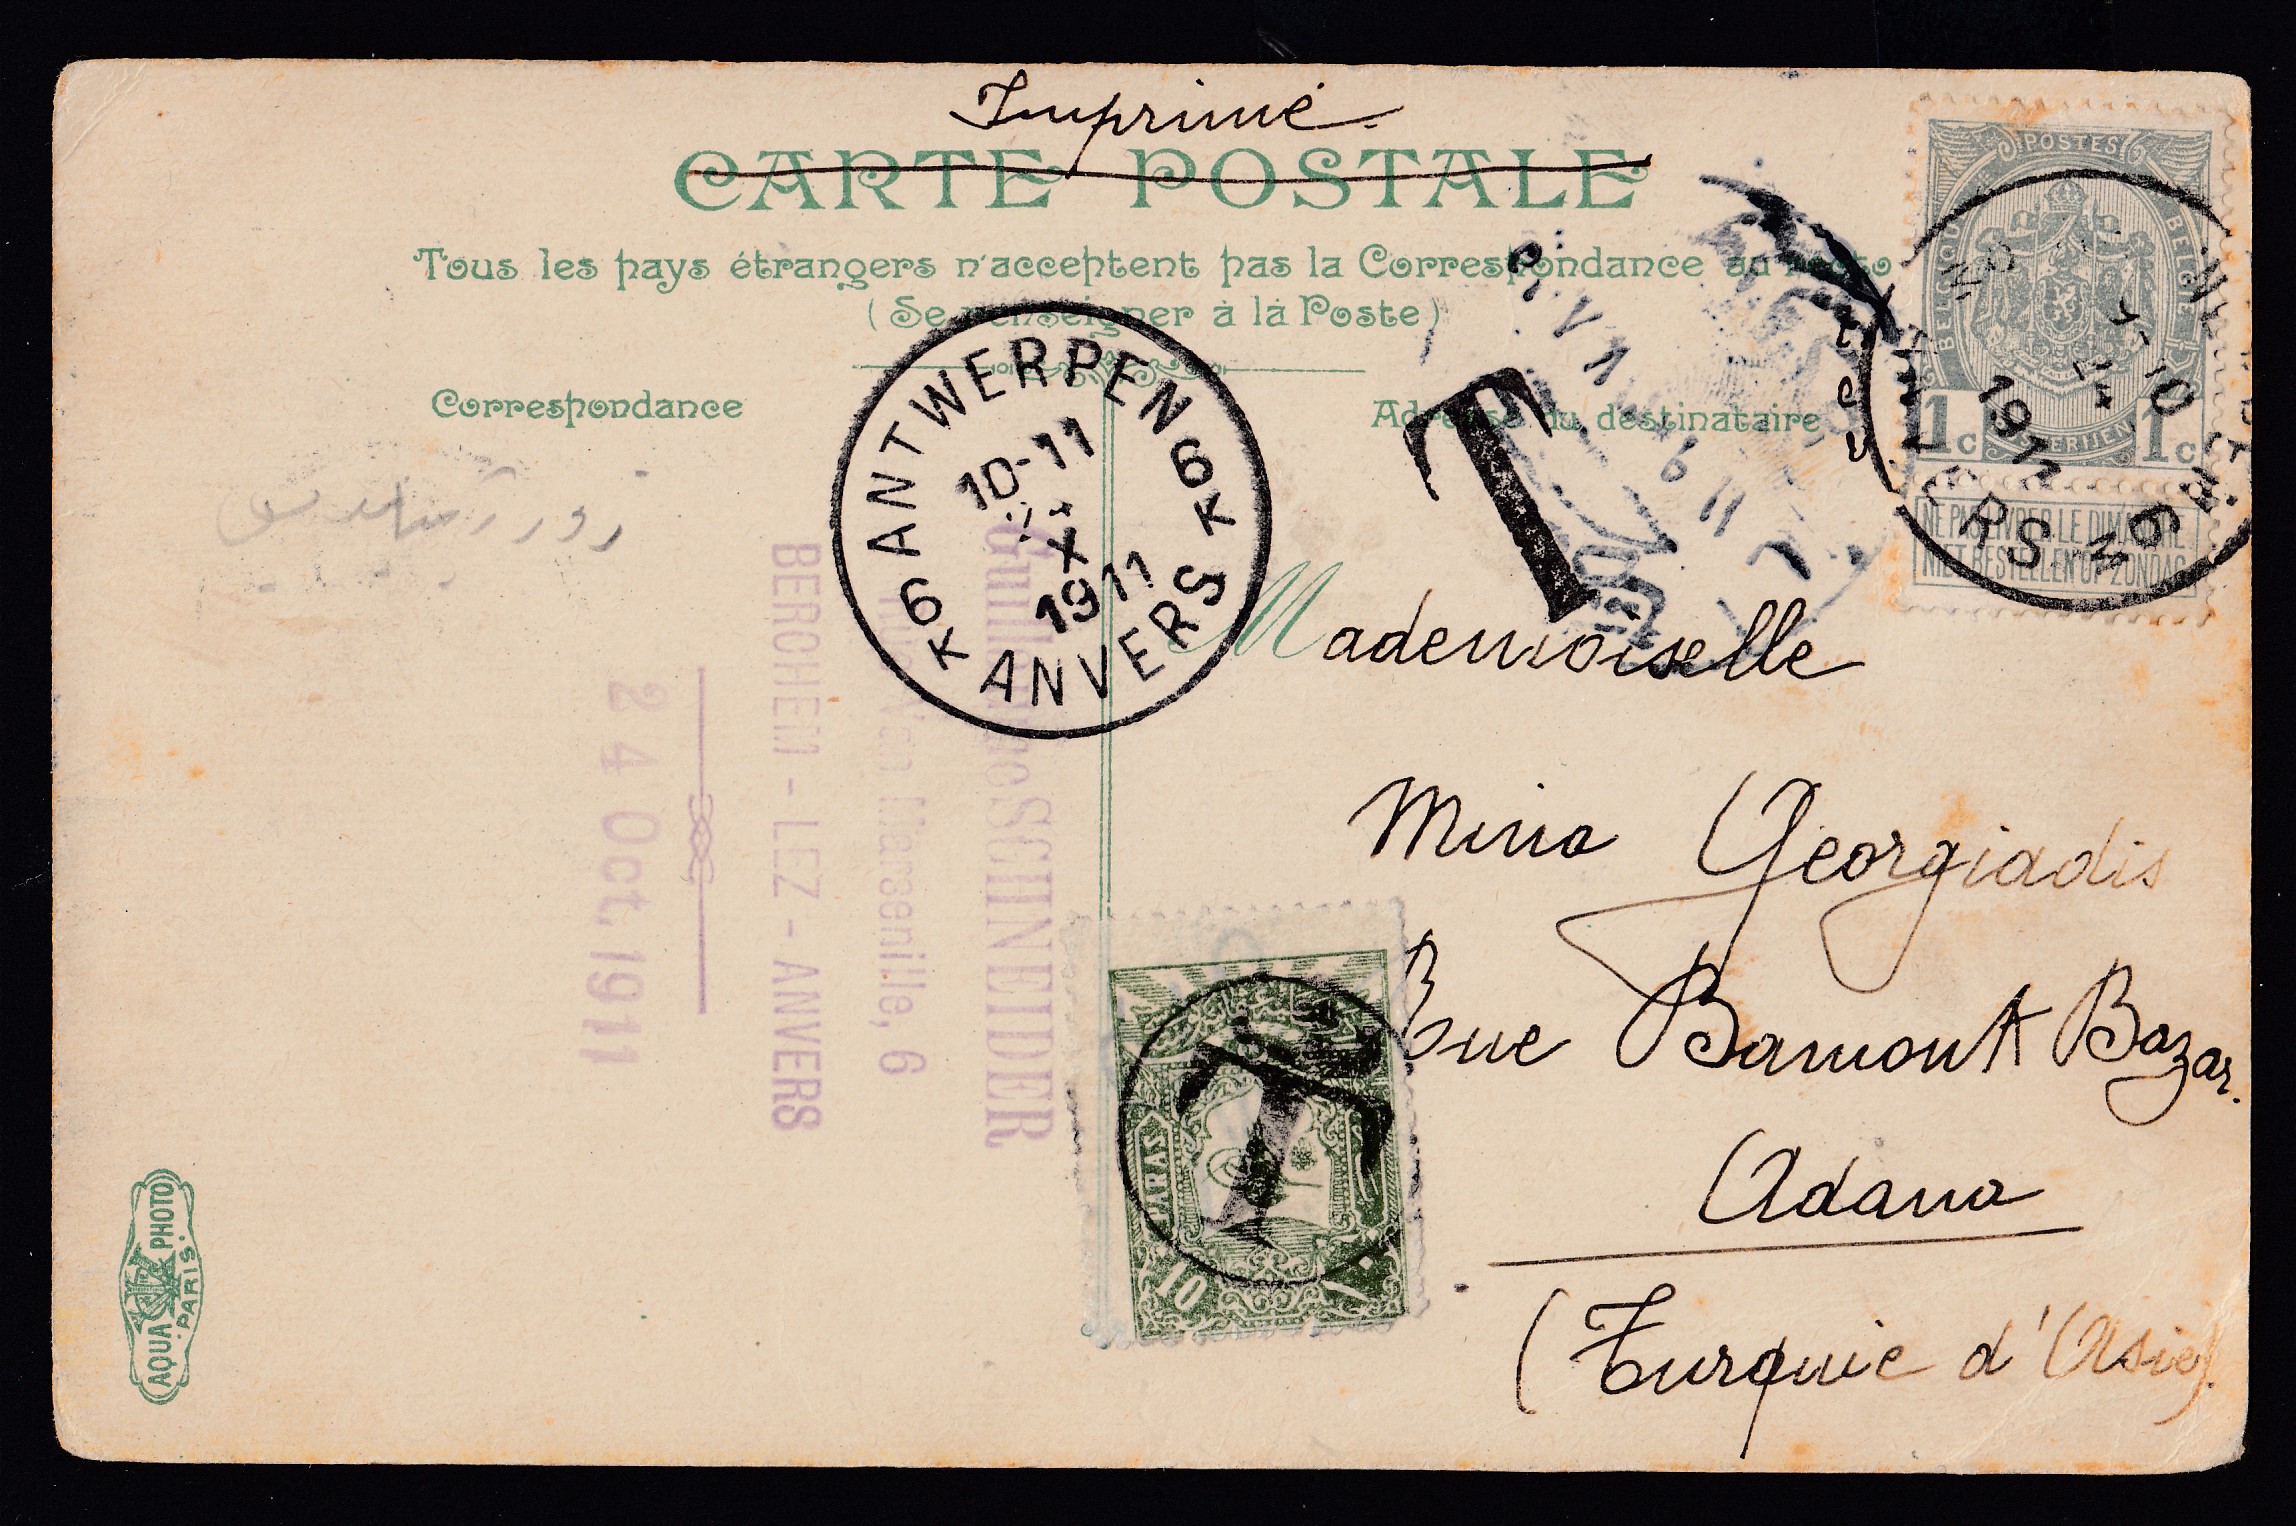 Imprimé
CARTE POSTALE
Tous les pays étrangers n'acceptent pas la Correspondance au recto
(Se renseigner à la Poste)
Correspondance
Adresse du destinataire
ANTWERPEN
6 K
10-11
X
1911
6 K
ANVERS
T
POSTES
BELGIQUE
BELGIË
POSTERIJEN
1c
1c
NE PAS LIVRER LE DIMANCHE
NIET BESTELLEN OP ZONDAG
1911
6
Mademoiselle
Mina Georgiadis
Rue Bamont Bazar.
Adana
(Turquie d'Asie).
Guillaume SCHNEIDER
Van Marsenille, 6
BERCHEM - LEZ - ANVERS
24 Oct. 1911
T
PARAS
10
١٠
AQUA PHOTO
PARIS